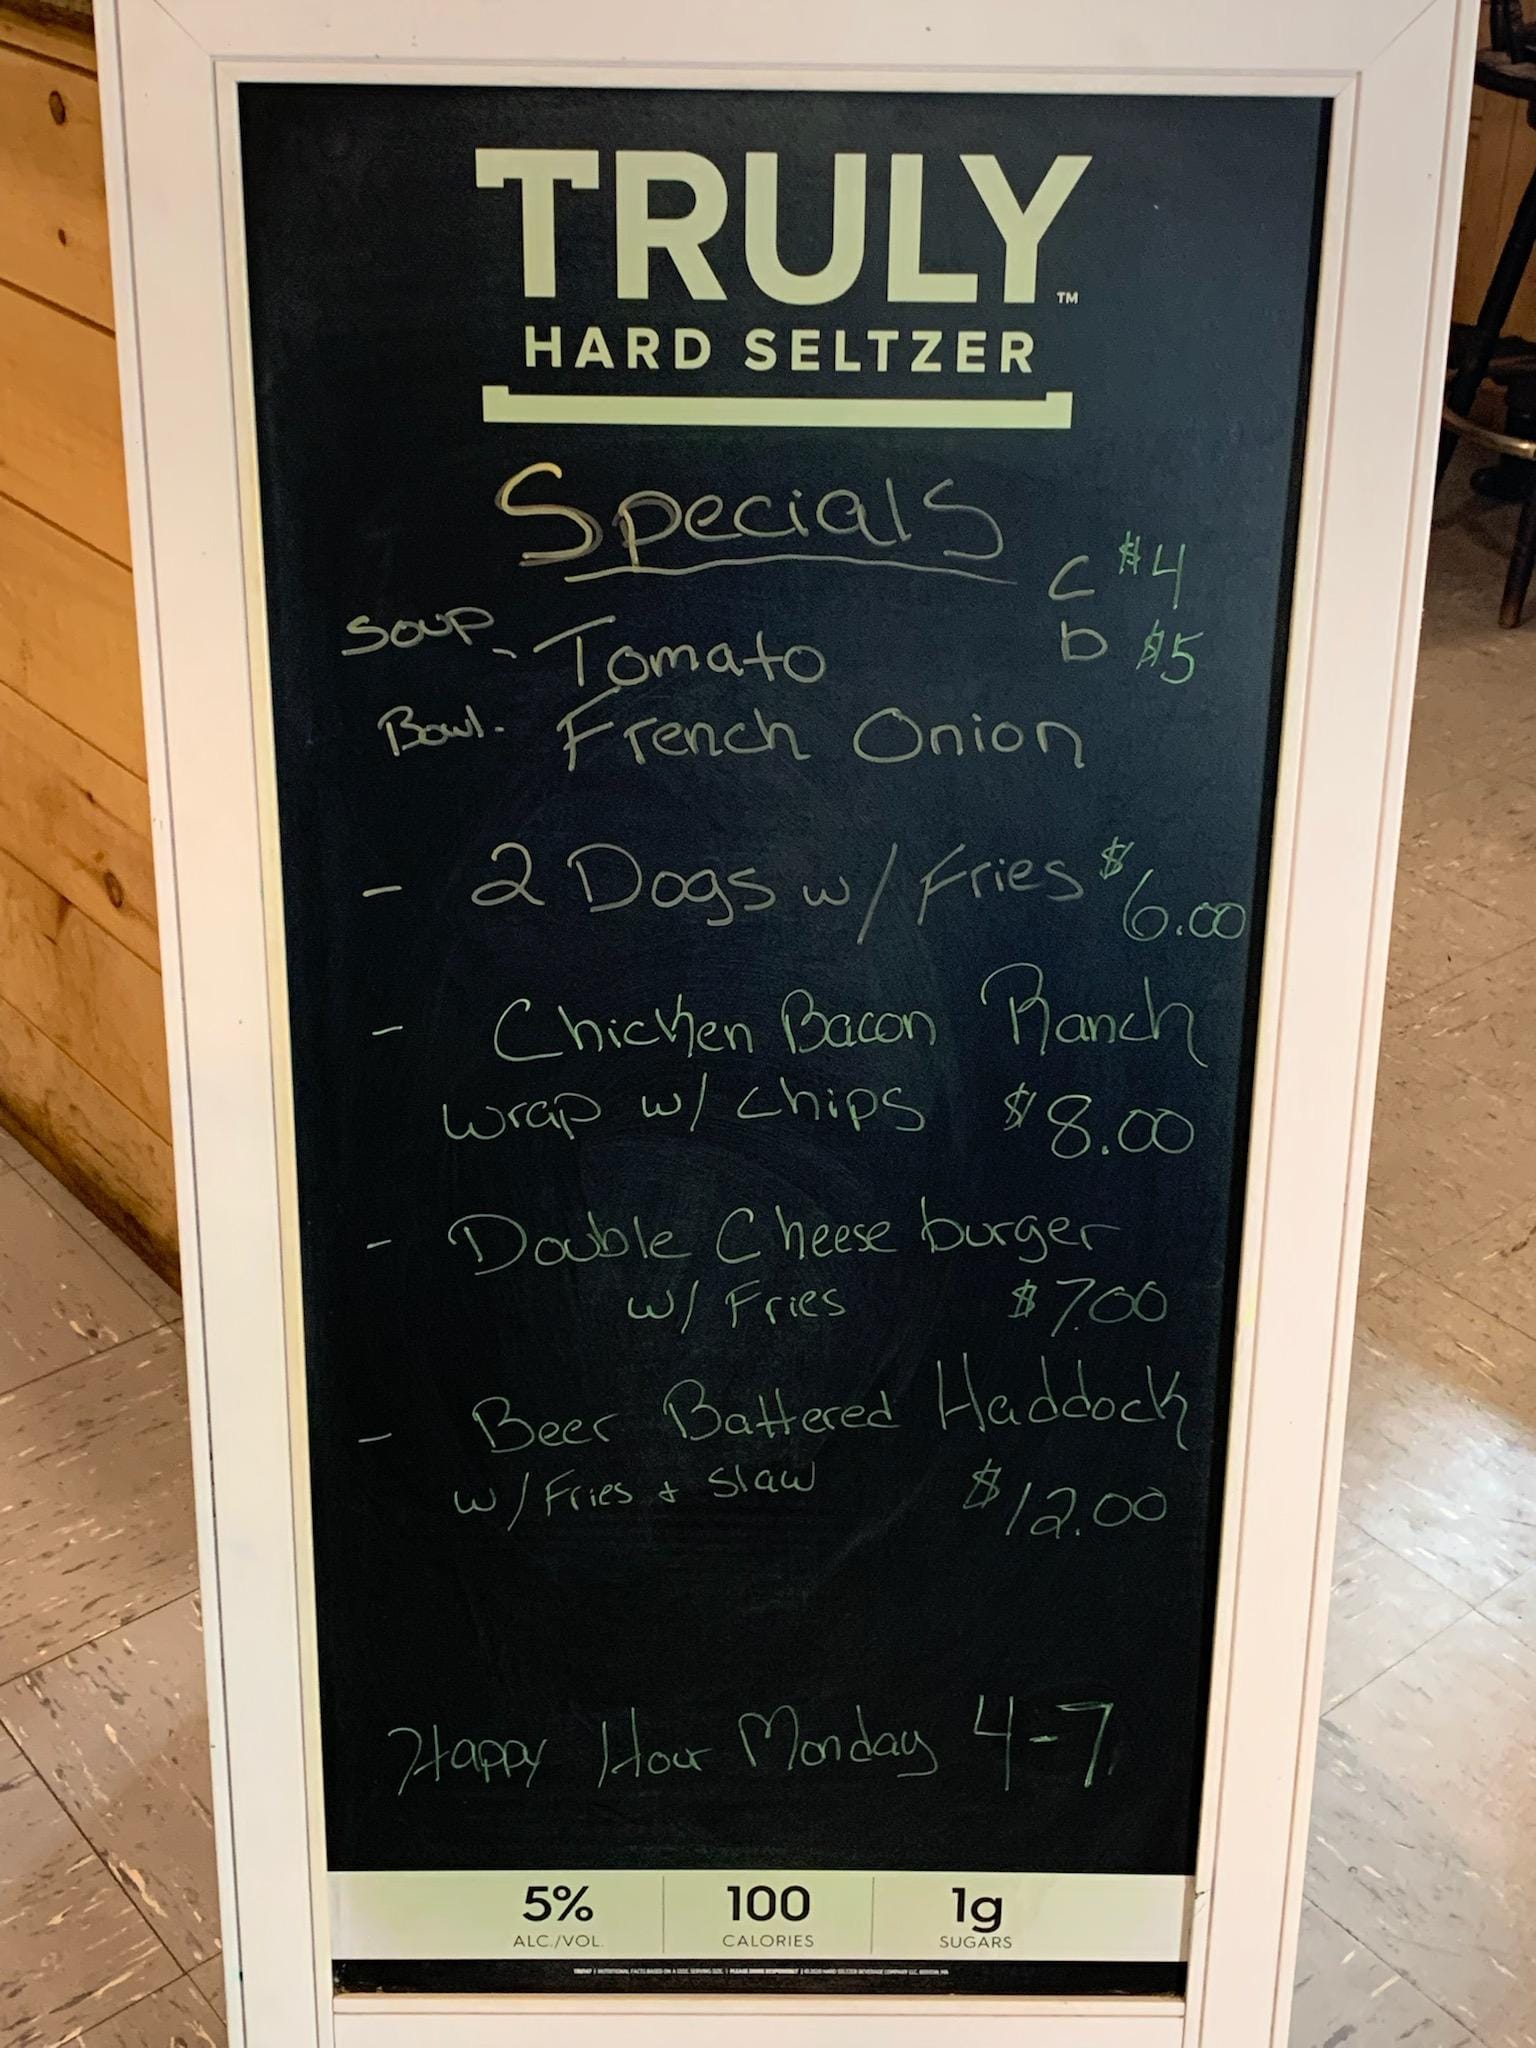 TRULY™
HARD SELTZER
Specials
C $4
Soup - Tomato b $5
Bowl. French Onion
- 2 Dogs w/ Fries $6.00
- Chicken Bacon Ranch
wrap w/ chips $8.00
- Double Cheese burger
w/ Fries $7.00
- Beer Battered Haddock
w/ Fries + Slaw $12.00
Happy Hour Monday 4-7
5% 100 1g
ALC./VOL. CALORIES SUGARS